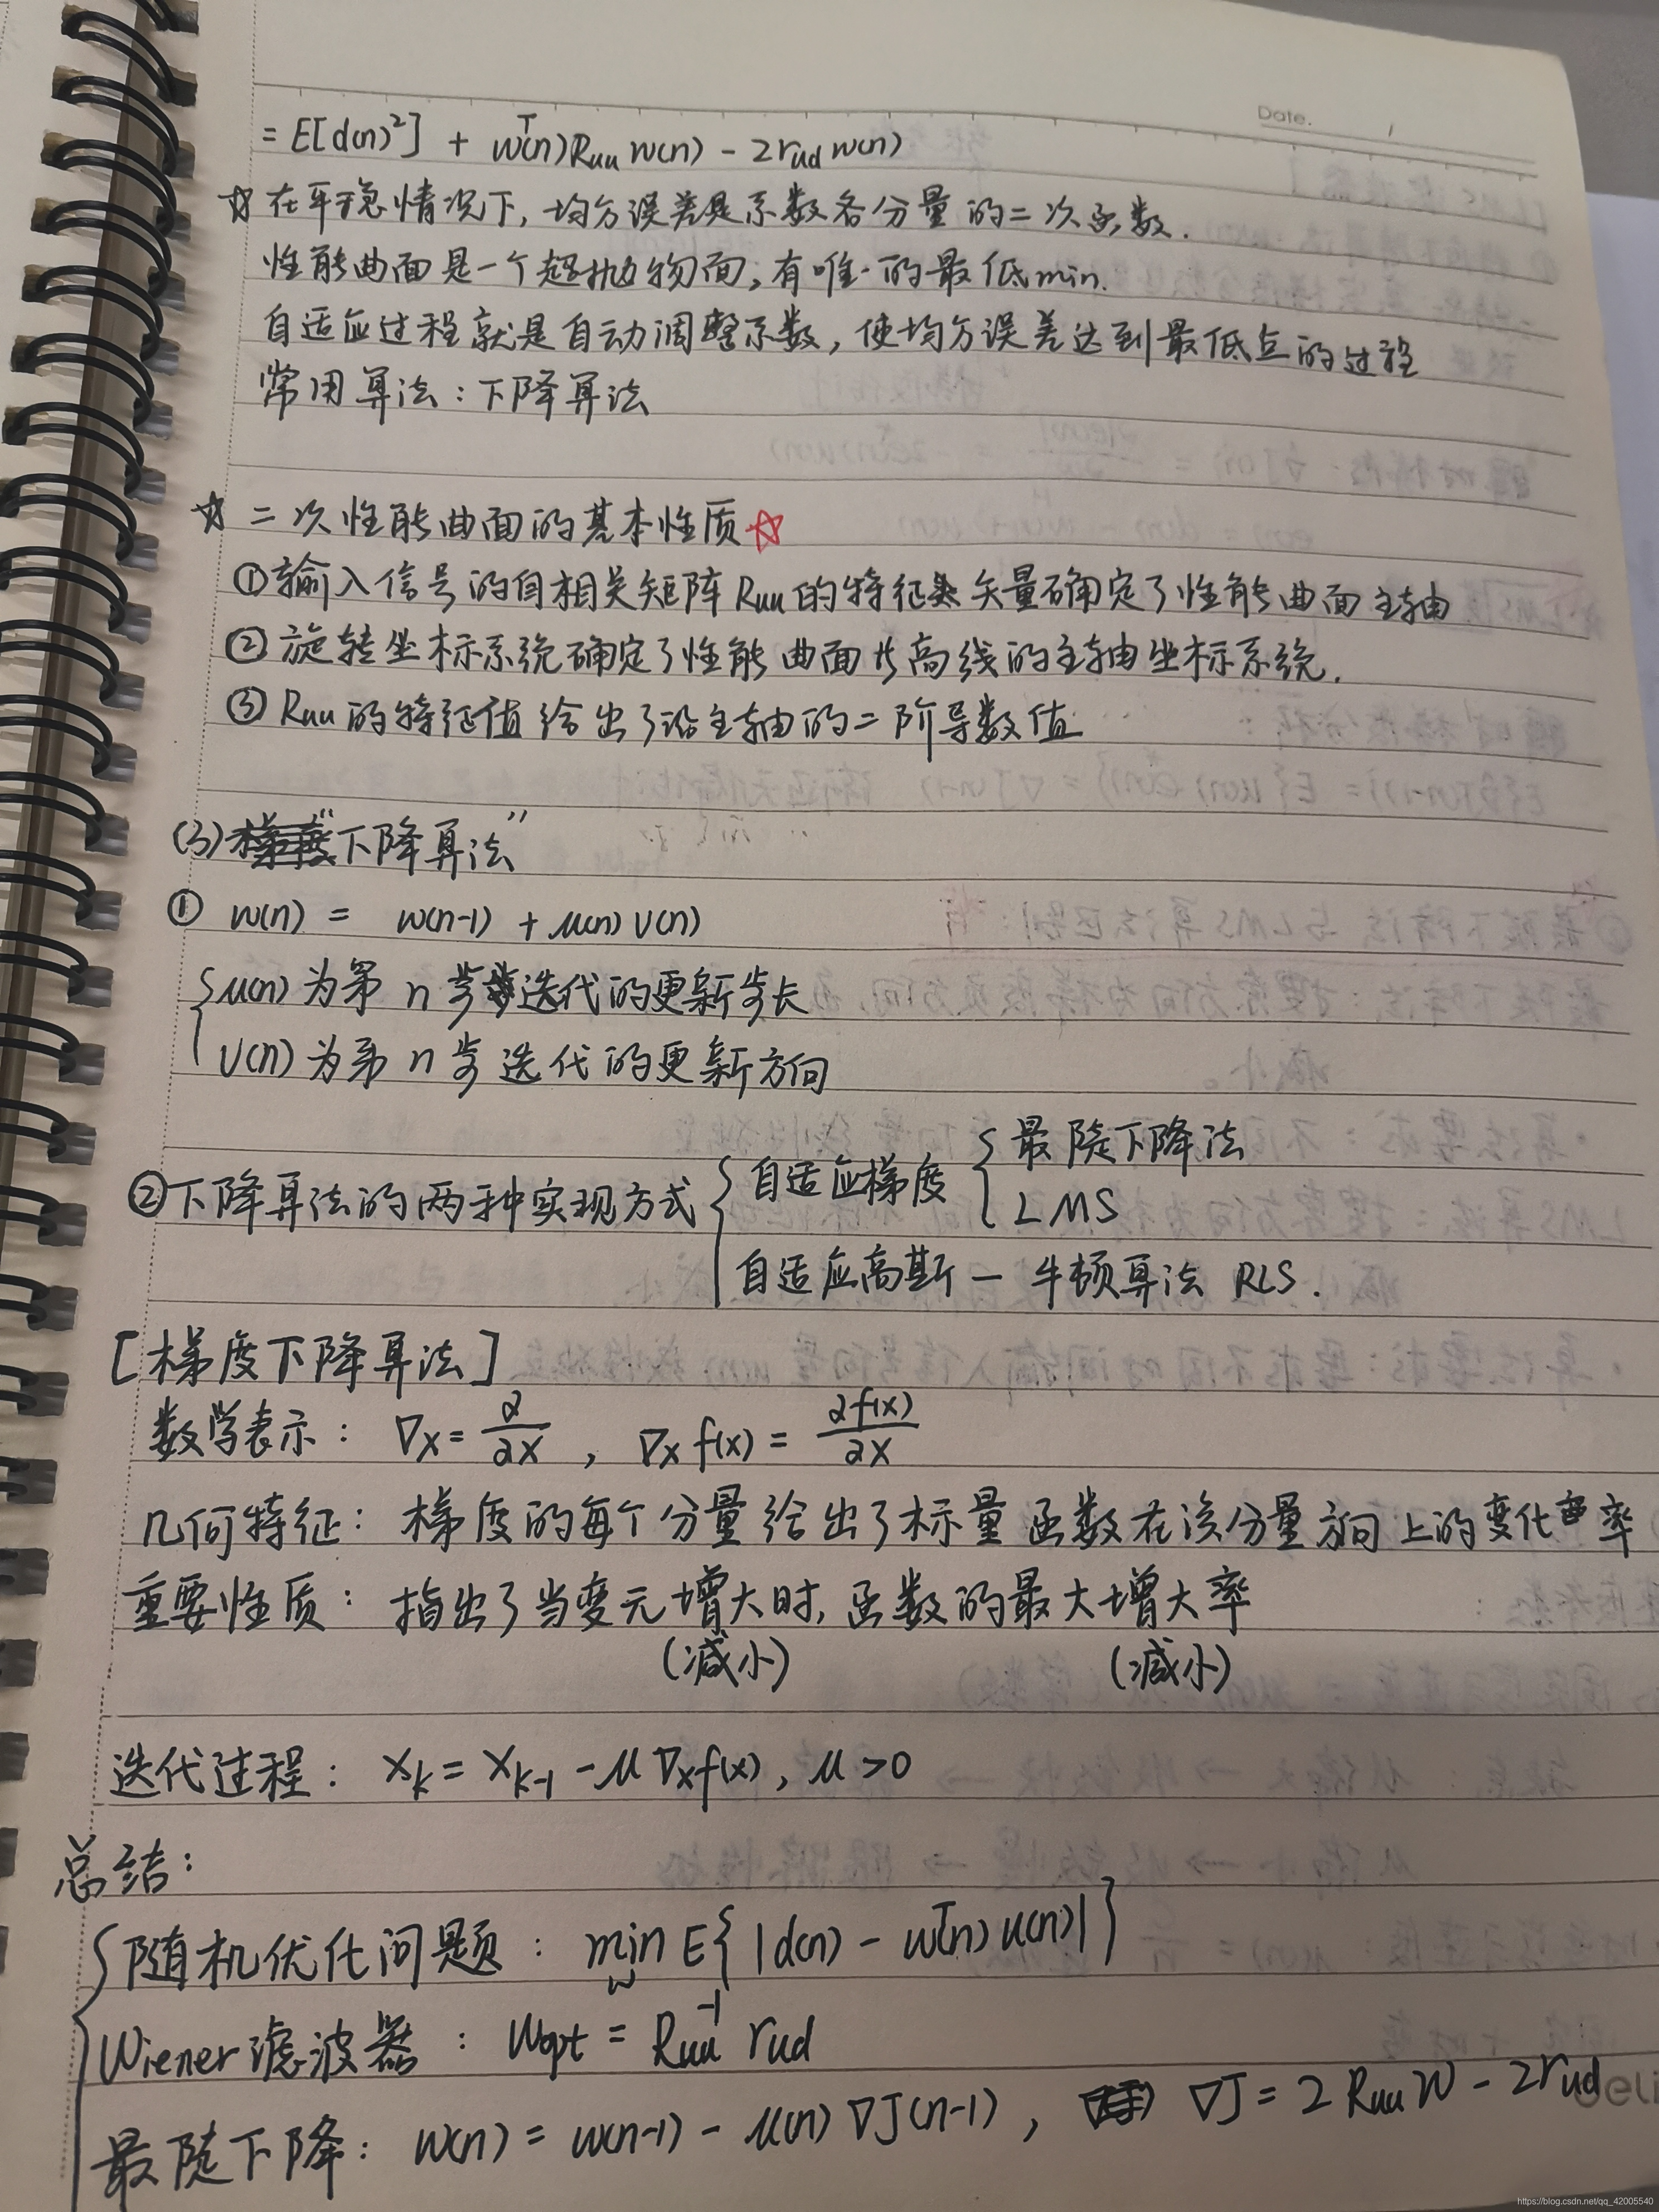 Date.
= E[d(n)²] + wᵀ(n)Ruu w(n) - 2rud w(n)
☆ 在平稳情况下，均方误差是系数各分量的二次函数.
性能曲面是一个超抛物面，有唯一的最低min.
自适应过程就是自动调整系数，使均方误差达到最低点的过程
常用算法：下降算法
☆ 二次性能曲面的基本性质☆
①输入信号的自相关矩阵Ruu的特征矢量确定了性能曲面主轴
②旋转坐标系统确定了性能曲面等高线的主轴坐标系统.
③Ruu的特征值给出了沿主轴的二阶导数值
(3)“下降算法”
① w(n) = w(n-1) + μ(n) v(n)
μ(n)为第n步迭代的更新步长
v(n)为第n步迭代的更新方向
②下降算法的两种实现方式 { 自适应梯度 { 最陡下降法
LMS
自适应高斯-牛顿算法 RLS.
[梯度下降算法]
数学表示：∇x = ∂/∂x ， ∇x f(x) = ∂f(x)/∂x
几何特征：梯度的每个分量给出了标量函数在该分量方向上的变化率
重要性质：指出了当变元增大时，函数的最大增大率
(减小) (减小)
迭代过程：x_k = x_{k-1} - μ ∇x f(x)，μ > 0
总结：
随机优化问题：min_w E{ |d(n) - wᵀ(n)u(n)| }
Wiener滤波器：wopt = Ruu⁻¹ rud
最陡下降：w(n) = w(n-1) - μ(n) ∇J(n-1)， ∇J = 2Ruu w - 2rud
deli
https://blog.csdn.net/qq_42005540